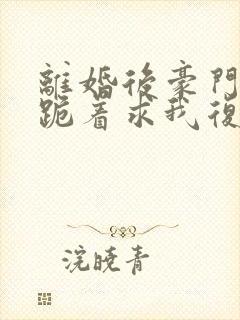 離婚後豪門
跪着求我復
浣曉青